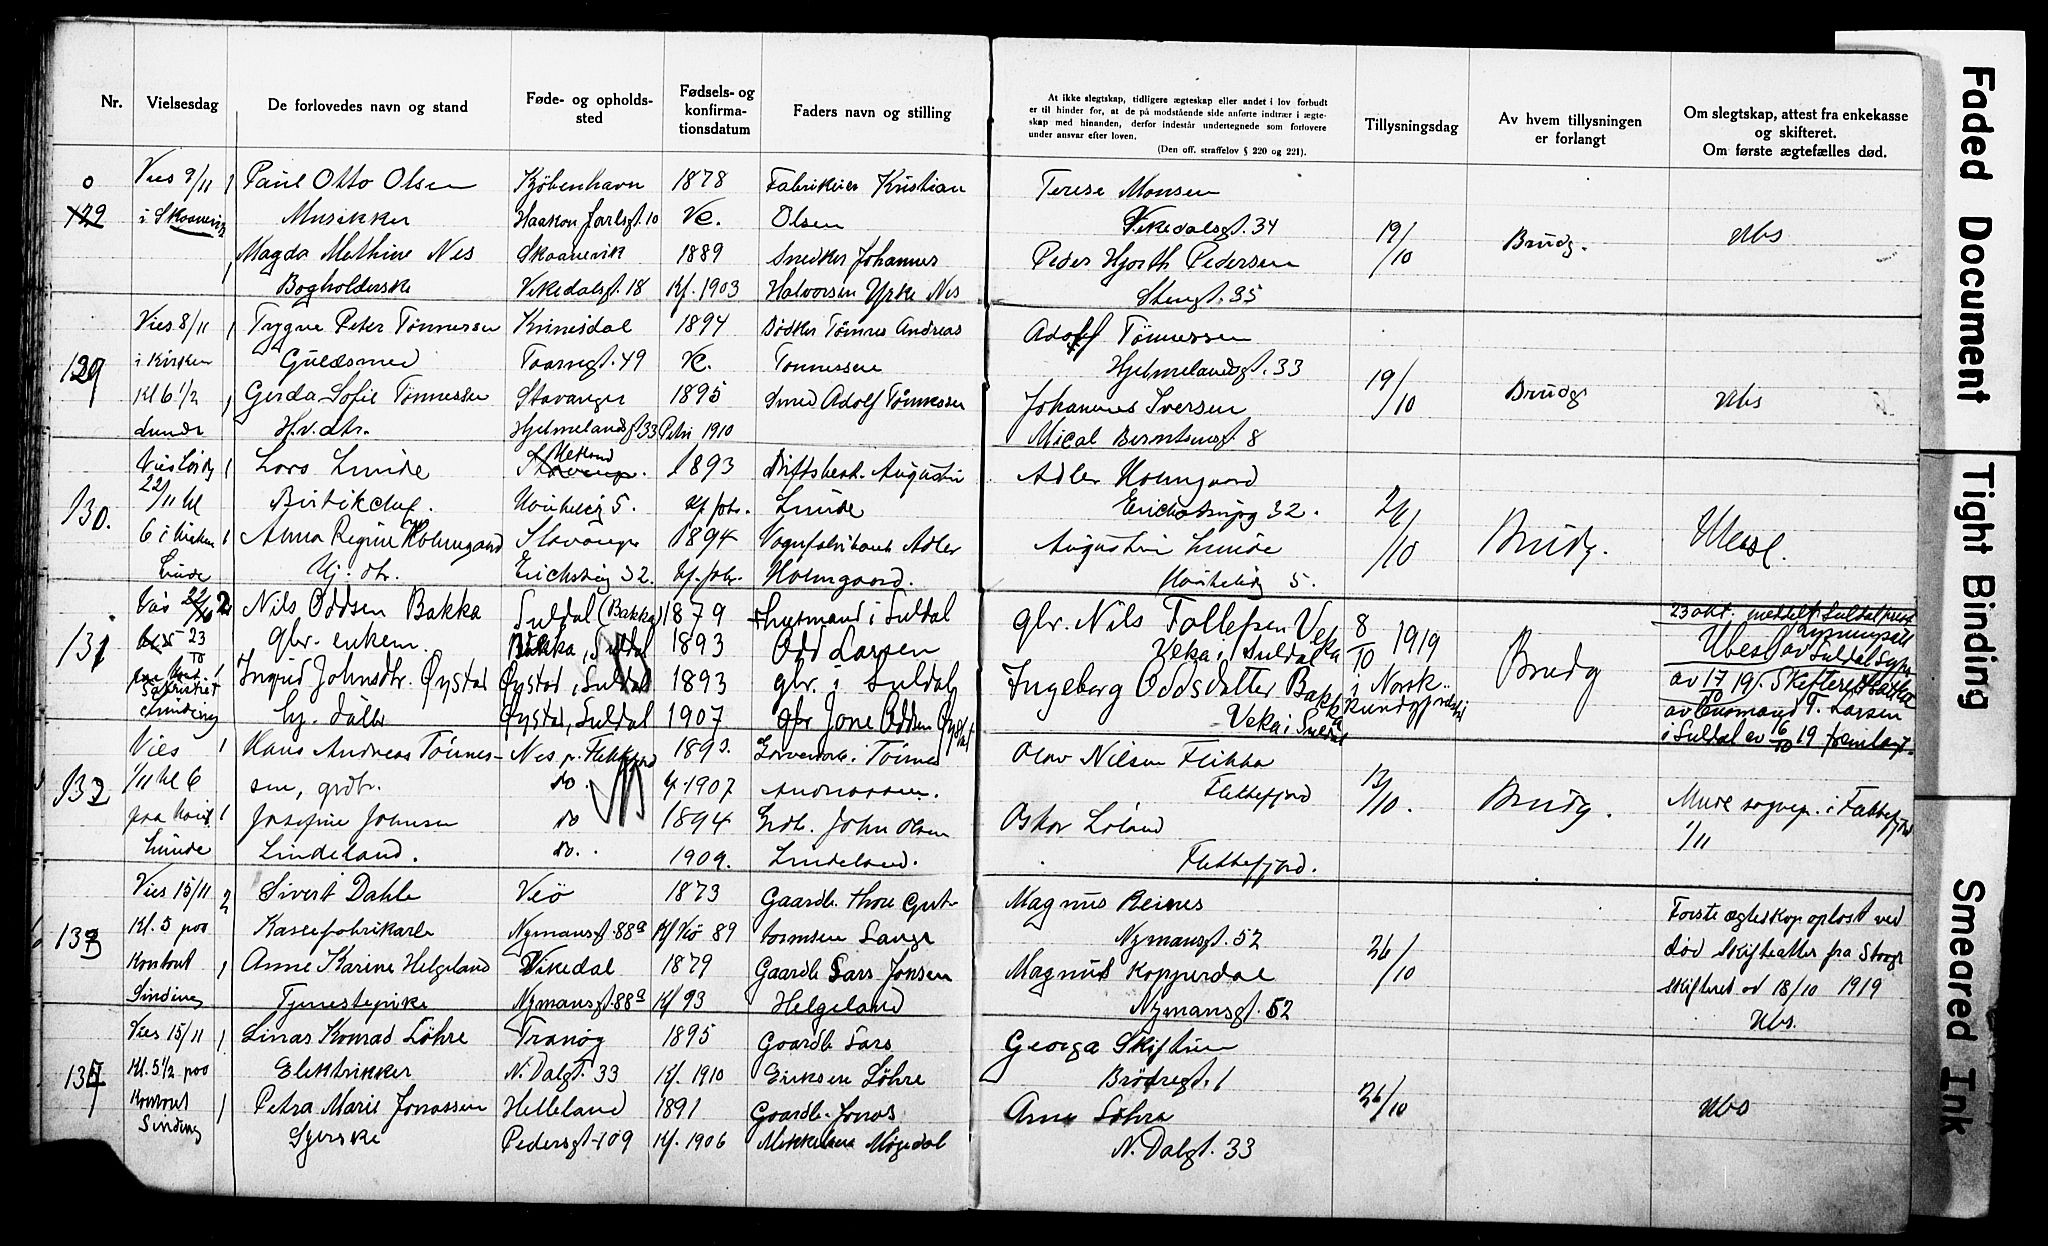 Nr. Vielsesdag De forlovedes navn og stand Føde- og opholds-sted Fødsels- og konfirma-tionsdatum Faders navn og stilling
At ikke slegtskap, tidligere ægteskap eller andet i lov forbudt er til hinder for, at de på modstående side anførte indtrær i ægte-skap med hinanden, derfor indestår undertegnede som forlovere under ansvar efter loven.
(Den off. straffelov § 220 og 221).
Tillysningsdag Av hvem tillysningen er forlangt
Om slegtskap, attest fra enkekasse og skifteret.
Om første ægtefælles død.
0 Vies 9/11 1 Paul Otto Olsen Kjöbenhavn 1878 Fabrikeier Kristian Terese Monsen
129 i Skaanevig Musikker Haakon Jarlsgt. 10 Olsen Vikedalsgt. 34 19/10 Brudg. Ubs
1 Magda Mathine Nes Skaanevik 1889 Snedker Johannes Peder Hjorth Pedersen
Bogholderske Vikedalsgt. 18 Kf. 1903 Halvorsen Yrke Nes Stengt. 35
Vies 8/11 1 Trygve Peter Tönnessen Kvinesdal 1894 Bödker Tönnes Andreas Adolf Tönnessen
129 i kirken Guldsmed Taarngt. 49 Tonnessen Hjelmelandsgt. 33 19/10 Brudg Ubs
Kl 6 1/2 1 Gerda Sofie Tönnessen Stavanger 1895 Smed Adolf Tönnessen Johannes Iversen
Lunde H.v. dtr. Hjelmelandsgt 33 Petri 1910 Mical Berntsensgt. 8
Vies Lördg 1 Lars Lunde Stavanger. 1893 Driftsbest. Augustin Adler Holmgaard
130. 22/11 kl Butikchef. 5. Kf. Lunde 32. 10 Brudg.
6 i kirken 1 Anna Regine Holmgaard Stavanger 1894 Vognfabrikant Adler Augustin Lunde
Lunde Hj. dtr. 32. Holmgaard. 5.
22/10 2 Nils Oddsen Bakka Suldal (Bakka) 1879 i Suldal gbr. Nils Tollefsen Veka 8/10 1919 23 okt. meddelt Suldal prest
131 23/10 gbr. enkem. Bakka, Suldal 1893 Odd Larsen Veka i Suldal Brudg Ubesl. av Suldal Sogn
1 Ingrid Johnsdtr. Öystad Öystad i Suldal 1893 gbr. i Suldal Ingeborg Oddsdatter Bakka i Norsk av 17/10 19. Skifteret
Sakristiet hj. datter Öystad, Suldal 1907 gbr Jone Oddsen Öystad Veka i Suldal Kundgjörelsestid av Lensmand T. Larsen
Sinding i Suldal av 16/10 19 fremlagt.
Vies 1 Hans Andreas Tönnes- Nes p. Flekkefjord 1893. Tönnes Olav Nilsen Flikka
132 1/11 kl 6 sen, grdbr. do. Kf 1907 Andreassen. Flekkefjord 13/10. Brudg. sognep. i Flekkefjord
paa Kont 1 Josefine Johnsen do 1894 Grdb. John Olsen Oskar Löland 1/11
Lunde Lindeland. do. 1909. Lindeland. Flekkefjord.
Vies 15/11 2 Sivert Dahle Veö 1873 Gaardb. Thore Magnus Reines Forste ægteskap oplöst ved
133 Kl. 5 paa Kassefabrikarb Nymansgt. 88a Kf Veö 89 Nymansgt. 52 26/10 död skifteattes fra Stavgr
Kontoret 1 Anne Karine Helgeland Vikedal 1879 Gaardb Lars Jonsen Magnus Kopperdal skifteret od 18/10 1919
Sinding Tjenestepike Nymansgt. 88a Kf 93 Helgeland Nymansgt. 52 Ubs.
Vies 15/11 1. Linas Konrad Löhre Tranöy 1895 Gaardb Lars Georga Skiftun
134 Kl. 5 1/2 paa Elektrikker N. Dalgt. 33 Kf. 1910 Eriksen Löhre Brödregt. 1 26/10 Ubs
Kontoret 1 Petra Marie Jonassen Helleland 1891 Gaardb. Jonas Arne Löhre
Sinding Syerske Pedersgt. 109 Kf. 1906 Mikkelsen Mögedal N. Dalgt. 33
Faded Document
Tight Binding
Smeared Ink